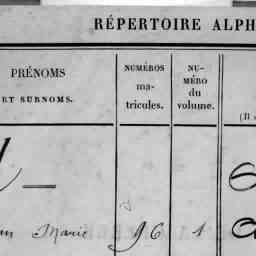 RÉPERTOIRE ALPH
PRÉNOMS
ET SURNOMS.
NUMÉROS
ma-
tricules.
NU-
MÉRO
du
volume.
Marie 96 1